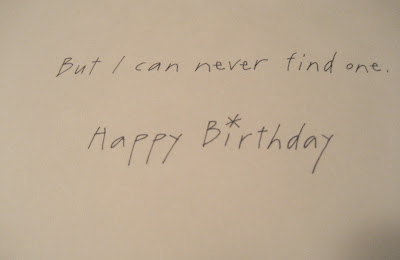 But I can never find one.
Happy B*rthday